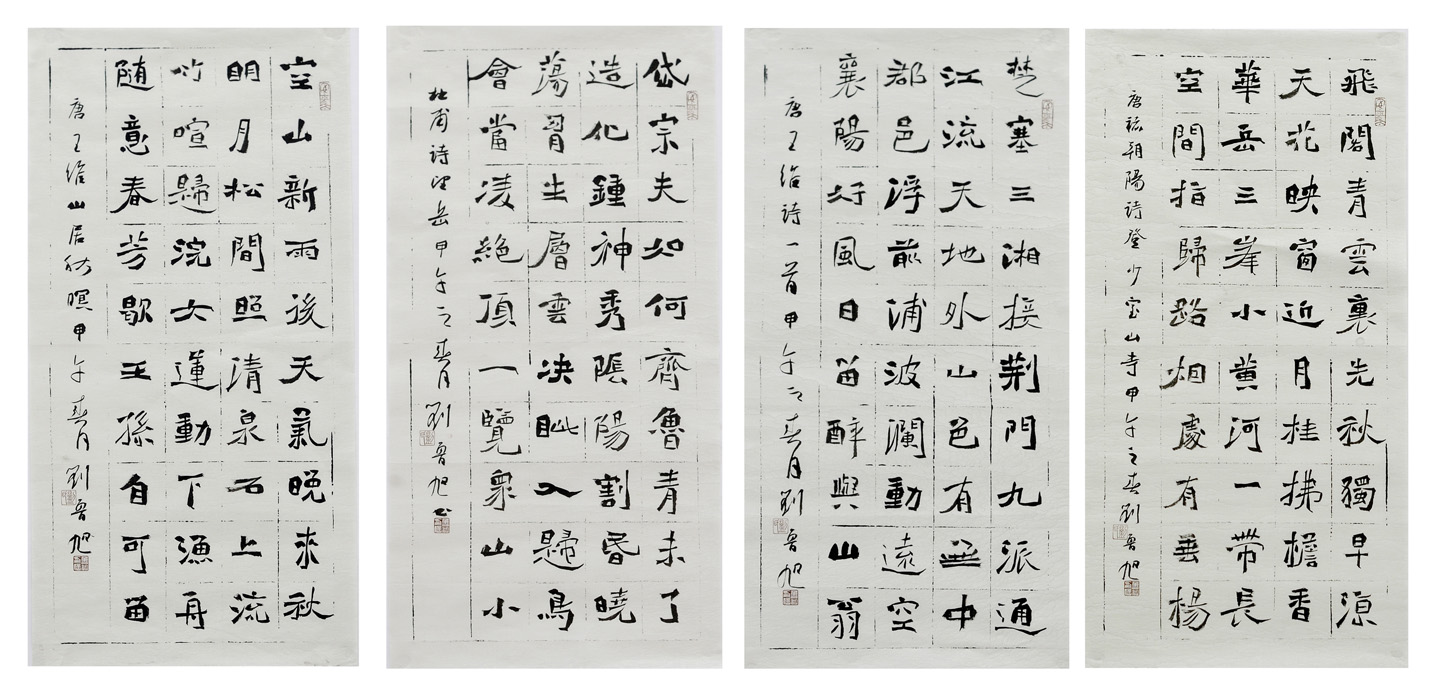 飛閣青雲裏先秋獨早涼
天花映窗近月桂拂檐香
華岳三峯小黃河一帶長
空間指歸路烟處有垂楊
唐朝陽詩登少室山寺甲午之春劉魯旭
楚塞三湘接荆門九派通
江流天地外山色有無中
郡邑浮前浦波瀾動遠空
襄陽好風日留醉與山翁
唐王維詩一首甲午之春月劉魯旭
岱宗夫如何齊魯青未了
造化鍾神秀陰陽割昏曉
蕩胷生層雲決眥入歸鳥
會當凌絕頂一覽衆山小
杜甫詩望岳甲午之春月劉魯旭書
空山新雨後天氣晚來秋
明月松間照清泉石上流
竹喧歸浣女蓮動下漁舟
隨意春芳歇王孫自可留
唐王維山居秋暝甲午春月劉魯旭